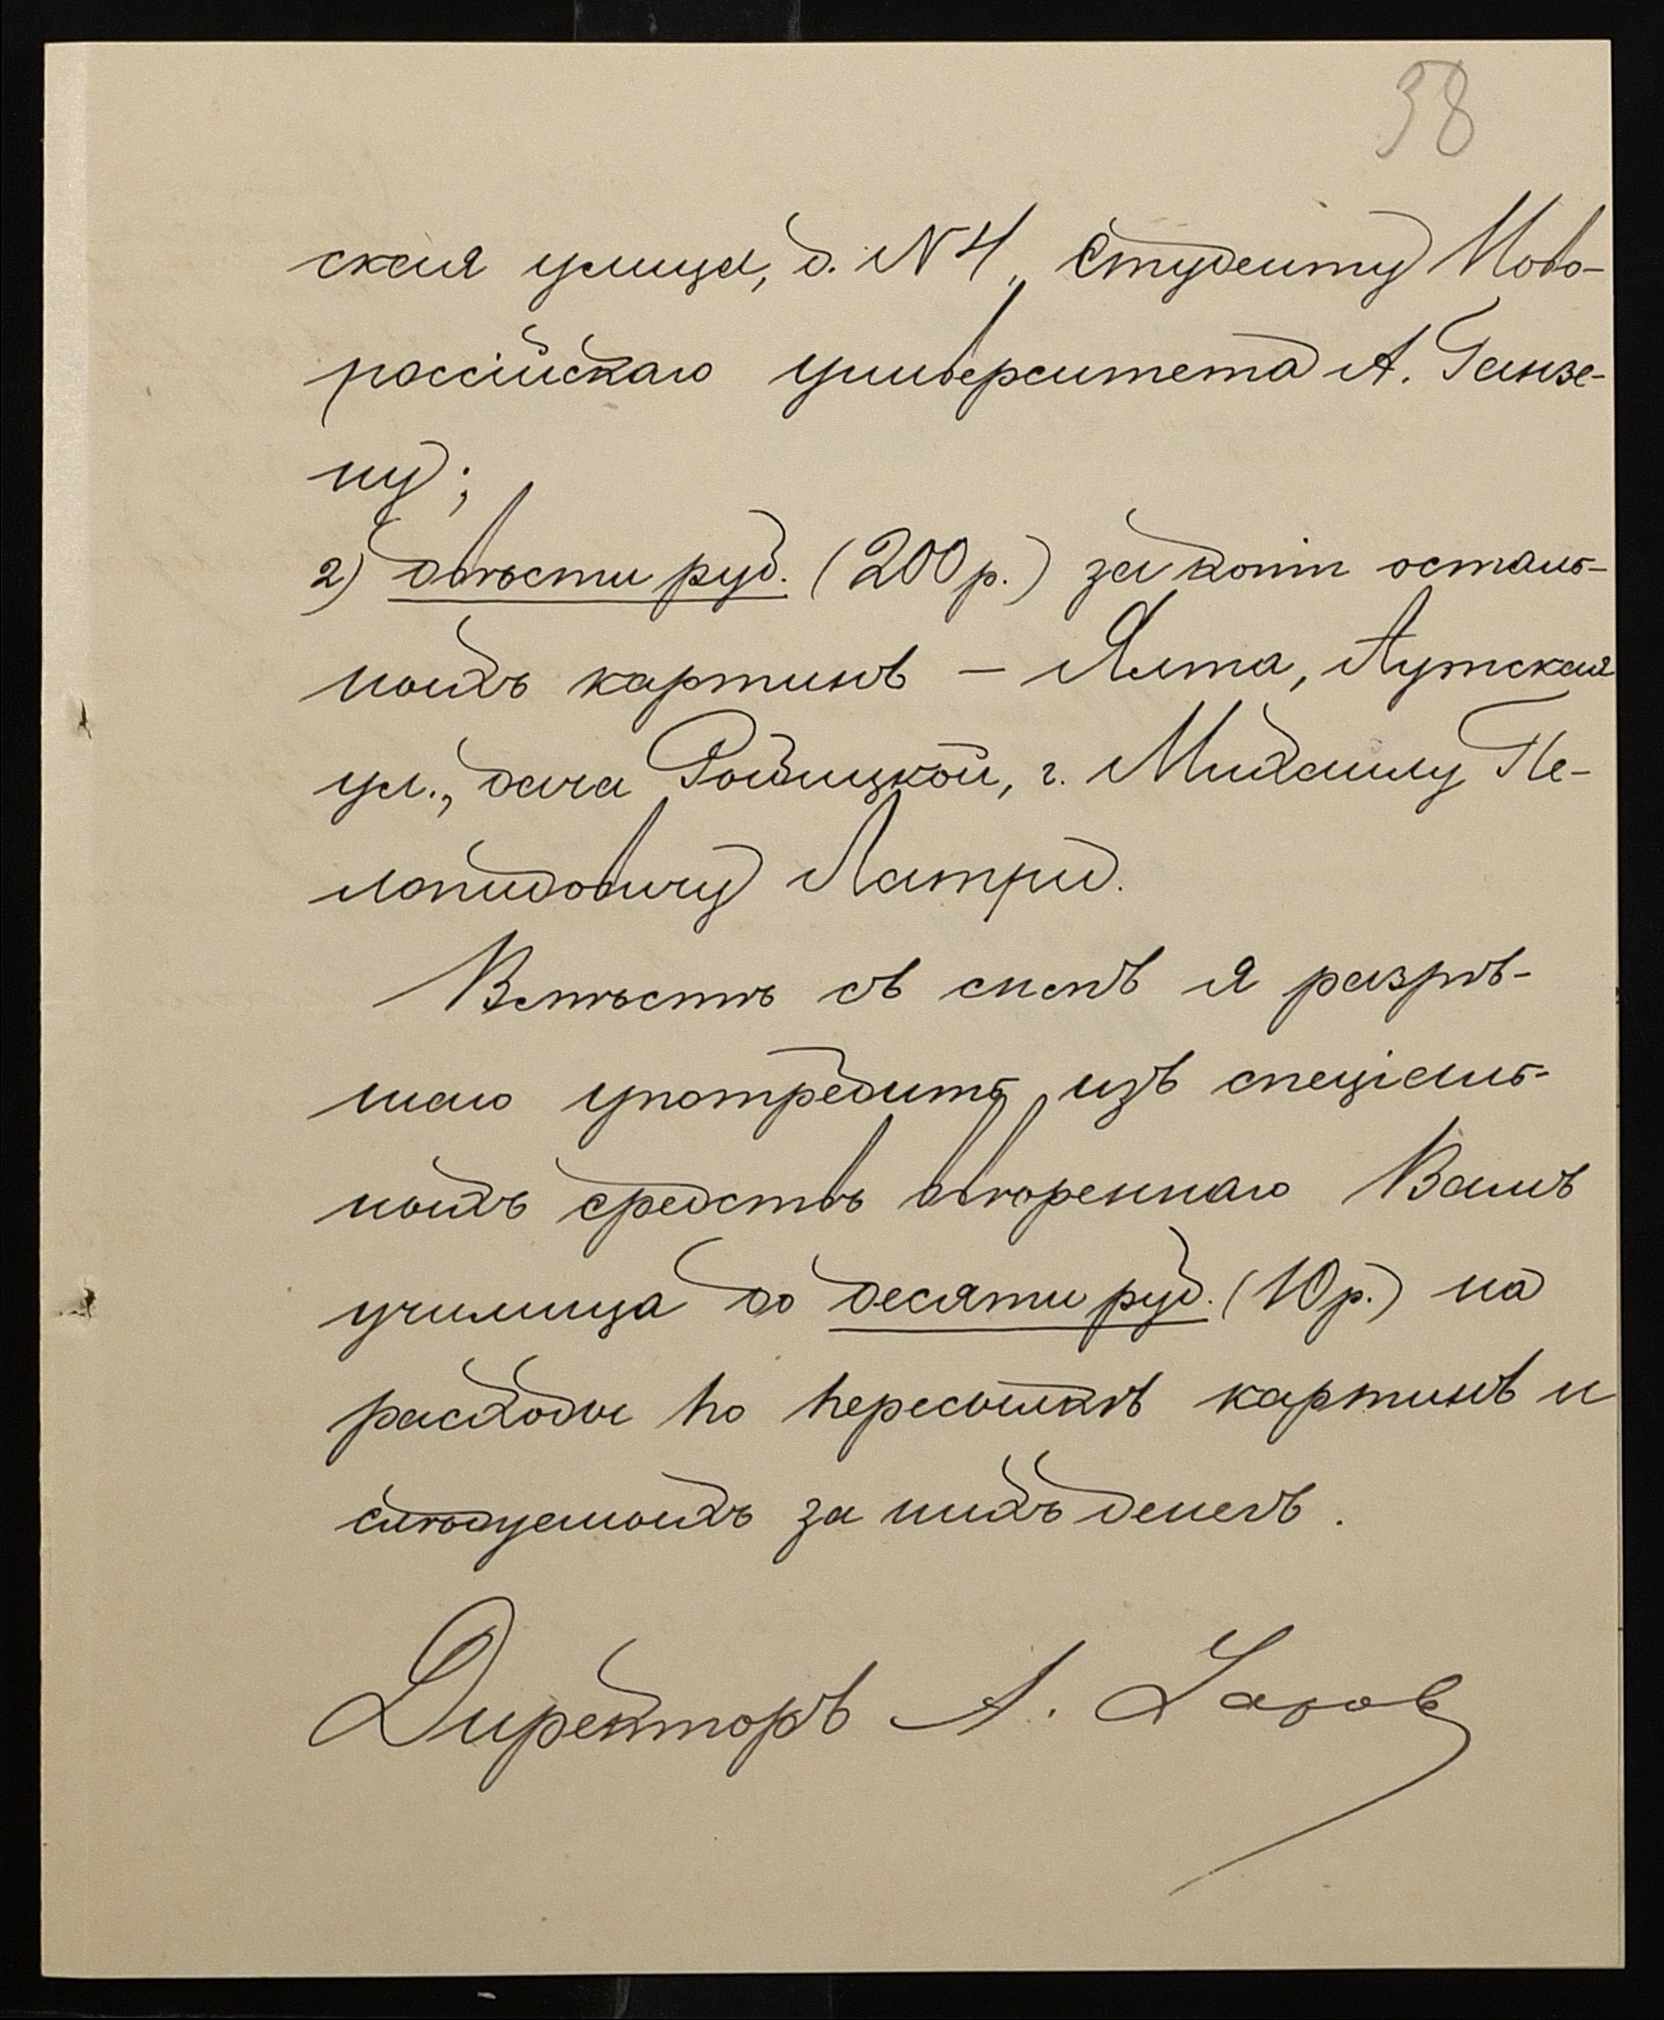 38
ская улица, д. № 4, студенту Ново-
россійскаго университета А. Ганзе-
ну;
2) двѣсти руб. (200 р.) за копіи осталь-
ныхъ картинъ – Ялта, Аутская
ул., дача Ройцкой, г. Михаилу Пе-
лопидовичу Латри.
Вмѣстѣ съ симъ я разрѣ-
шаю употребить изъ спеціаль-
ныхъ средствъ ввѣреннаго Вамъ
училища до десяти руб. (10 р.) на
расходы по пересылкѣ картинъ и
слѣдуемыхъ за нихъ денегъ.
Директоръ А.